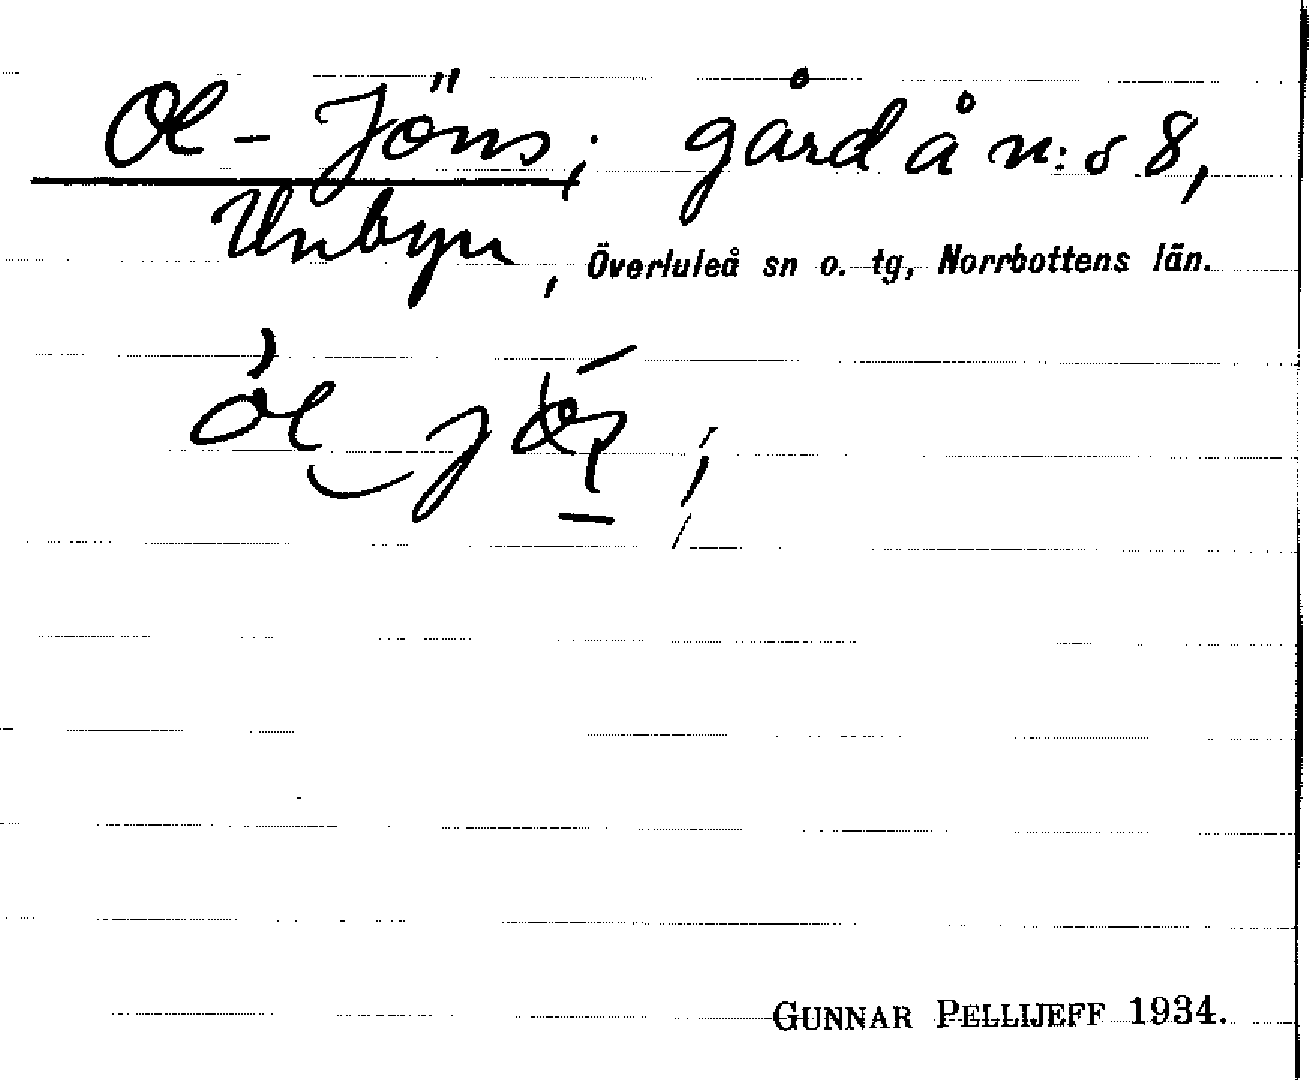 Ol-Jöns; gård å n:o 8,
Unbyn, Överluleå sn o. tg, Norrbottens län.
GUNNAR PELLIJEFF 1934.